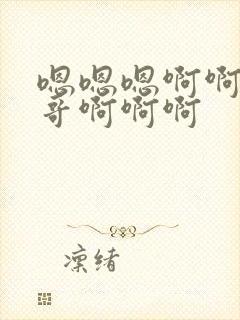 嗯嗯嗯啊啊
哥啊啊啊
凛绪